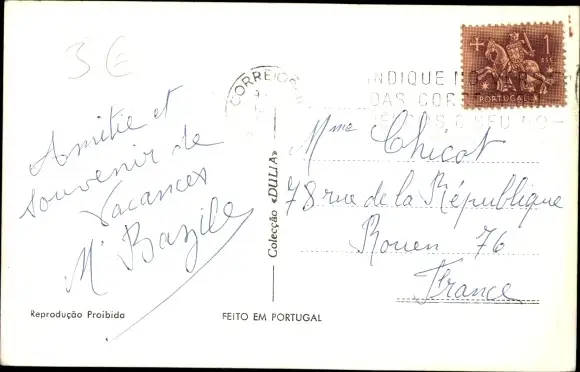 3€
Amitié et
souvenir de
Vacances
M. Bazile
CORREIOS
INDIQUE NO
DAS COR
O SEU NO-
1
PORTUGAL
Mme Chicot
78 rue de la République
Rouen 76
France
Colecção «DULIA»
Reprodução Proibida
FEITO EM PORTUGAL